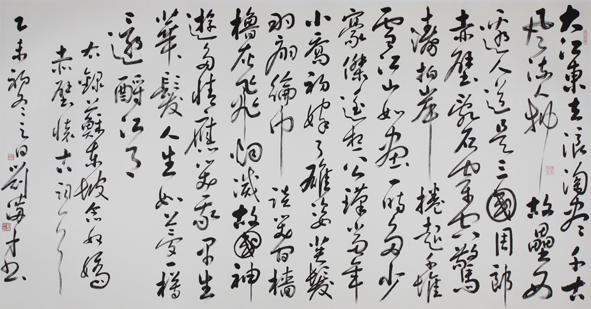 大江東去浪淘盡千古
風流人物故壘西
邊人道是三國周郎
赤壁亂石穿空驚
濤拍岸捲起千堆
雪江山如畫一時多少
豪傑遙想公瑾當年
小喬初嫁了雄姿英髮
羽扇綸巾談笑間檣
櫓灰飛烟滅故國神
遊多情應笑我早生
華髮人生如夢一樽
還酹江月
右錄蘇東坡念奴嬌
赤壁懷古詞一首
乙未初冬之日劉海才書